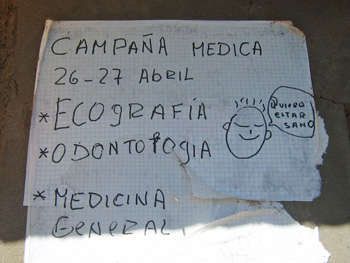 CAMPAÑA MEDICA
26-27 ABRIL
* ECOGRAFÍA
* ODONTOLOGIA
QUIERO
ESTAR
SANO
* MEDICINA
GENERAL